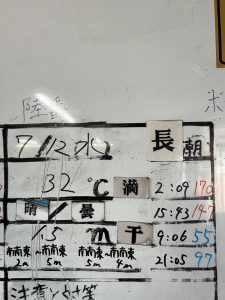 陸
7/12 水 長 朝
32 ℃ 満 2:09 170
晴/曇 15:43 147
1.5 m 干 9:06 55
南南東～南南東～南南東 21:05 97
5m 5m 4m
注意